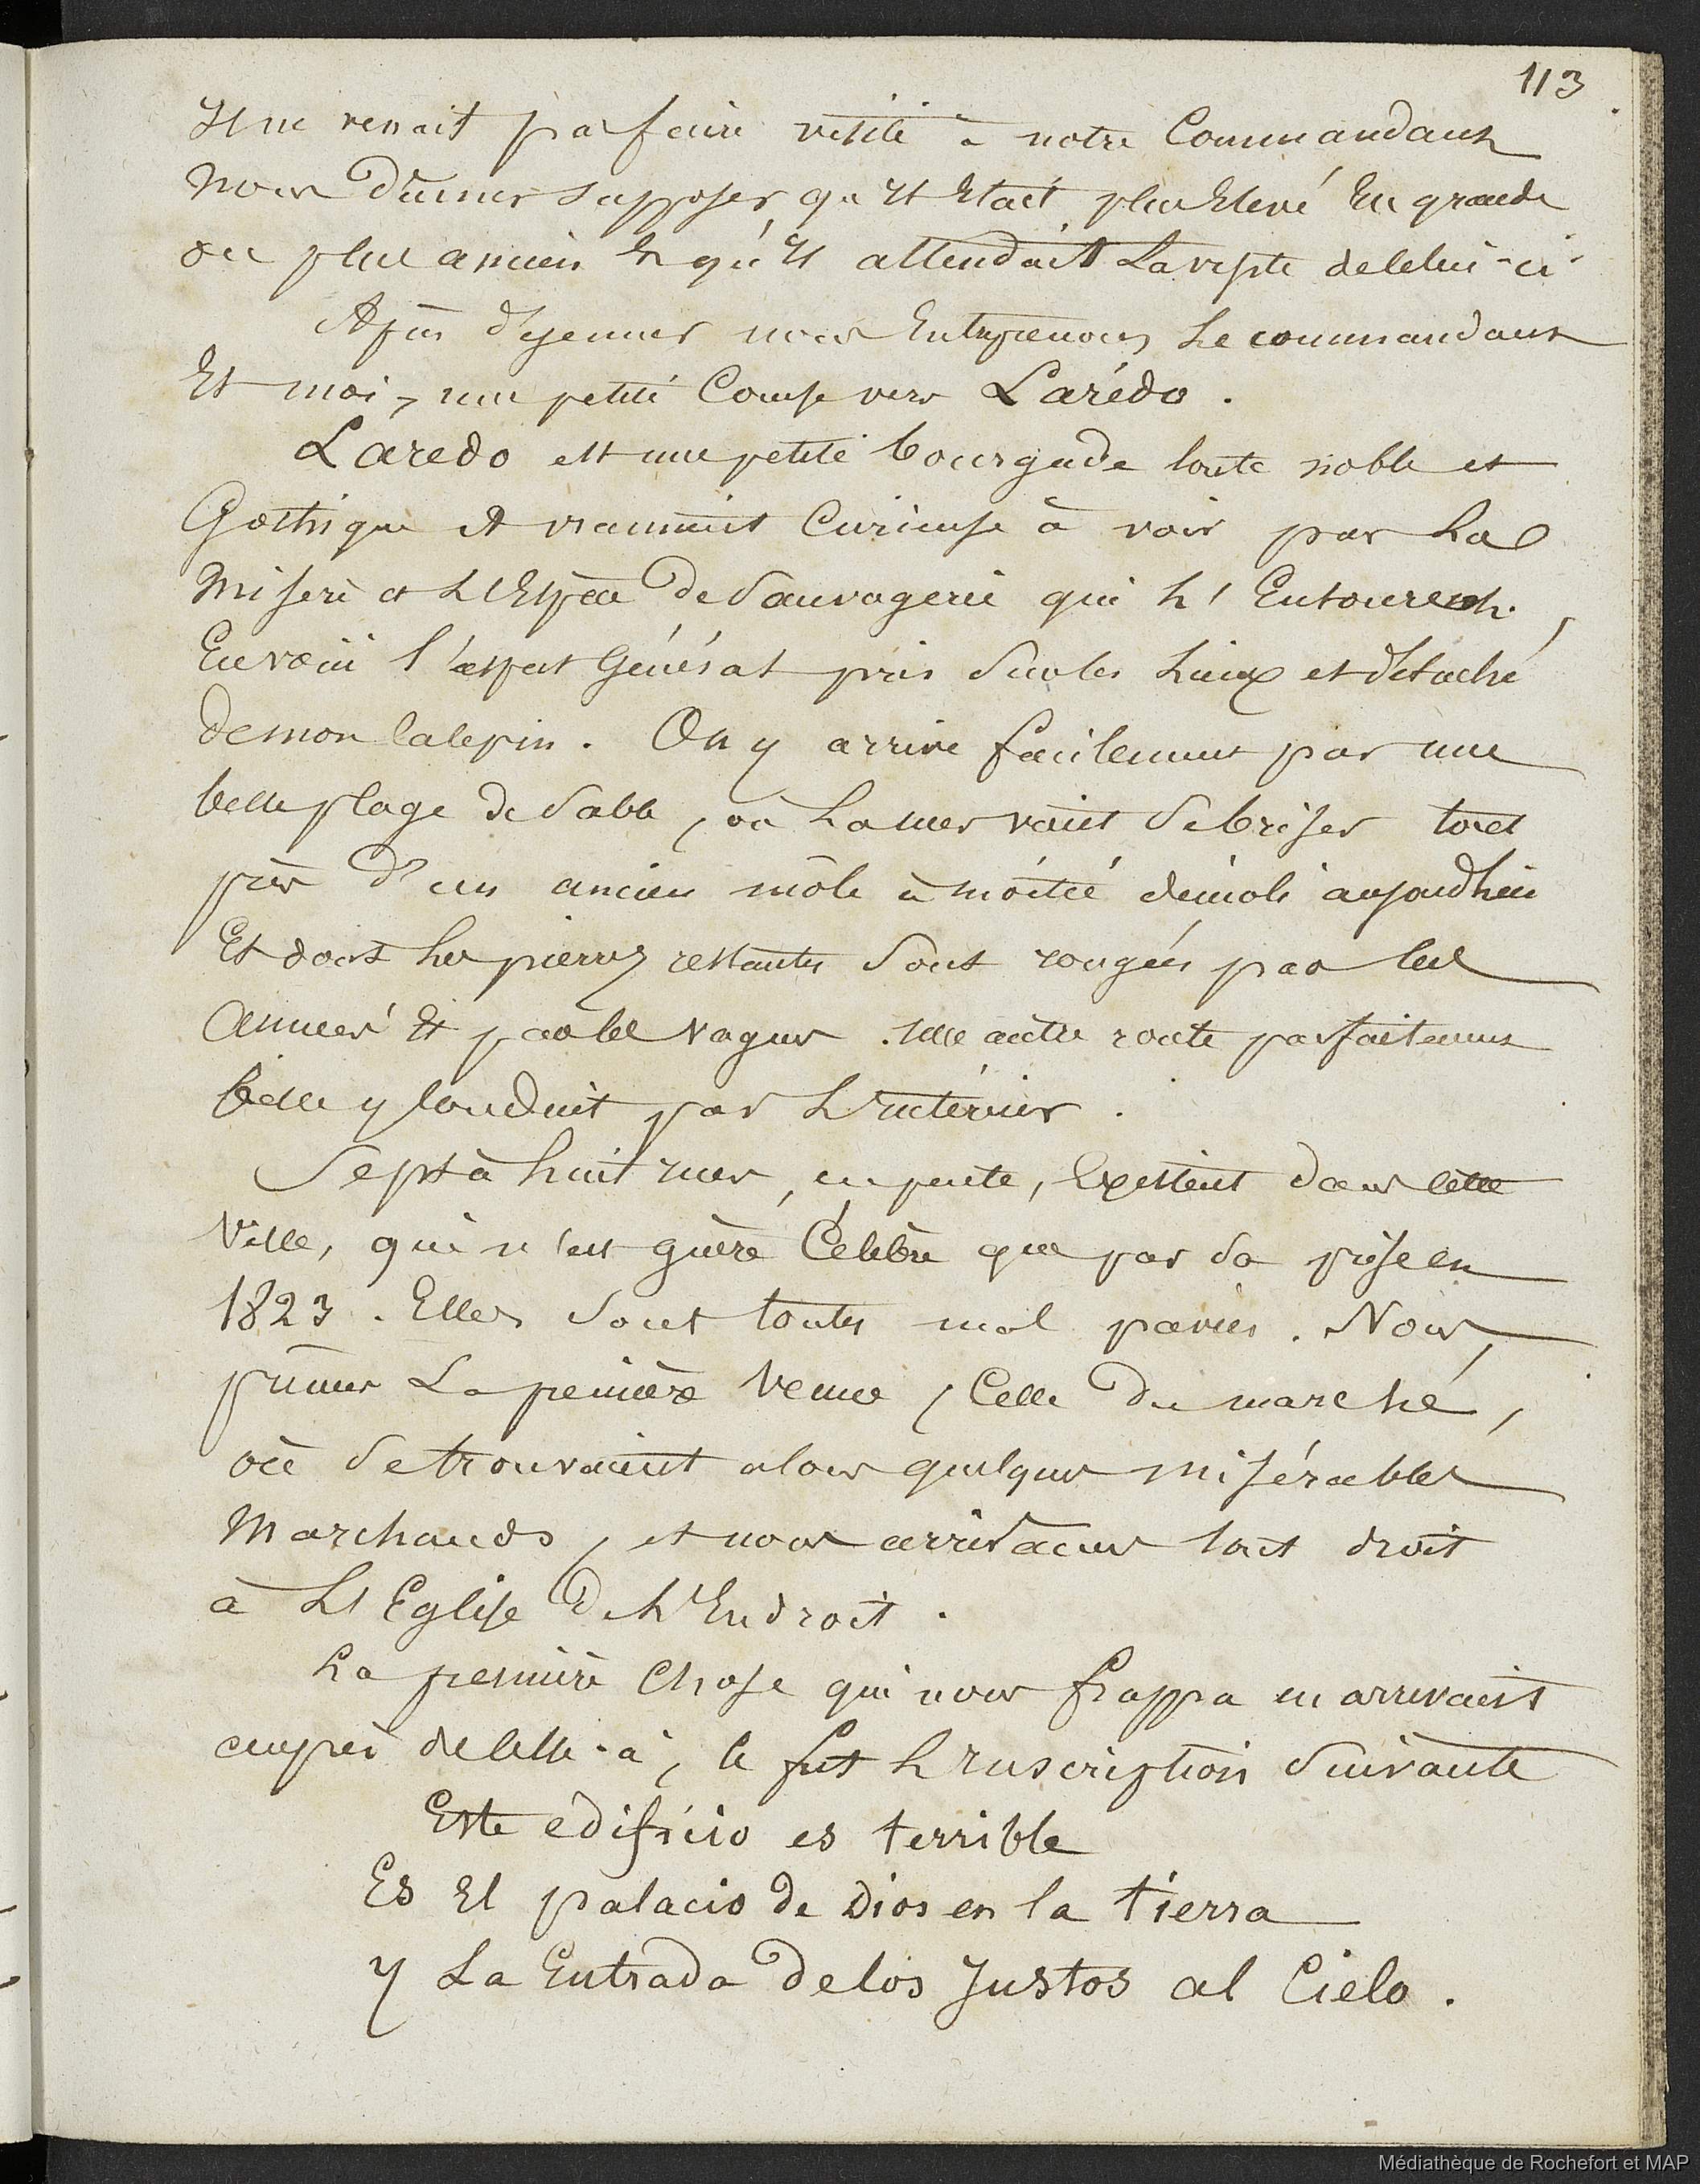 113
Il ne venait pas faire visite à notre Commandant
Nous dûmes supposer qu'Il Etait plus Elevé En grade
ou plus ancien Et qu'Il attendait La visite de Celui-ci
Après déjeuner nous Entreprenons Le commandant
Et moi, une petite Course vers Larédo.
Larédo est une petite bourgade toute noble et
Gothique et vraiment Curieuse à voir par La
Misère et L'Espèce de Sauvagerie qui L'Entourent.
En voici l'aspect Général pris sur les Lieux et détaché
de mon Calepin. On y arrive facilement par une
belle plage de Sable, où La mer vient Se briser tout
près d'un ancien môle à moitié démoli aujourdhui
Et dont Les pierres restantes Sont rongées par les
Années Et par les vagues. Une autre route parfaitement
belle y Conduit par L'Intérieur.
Sept à huit rues, en pente, Existent dans Cette
Ville, qui n'est guère Célèbre que par Sa prise en
1823. Elles Sont toutes mal pavées. Nous
prîmes La première Venue, Celle du marché,
où Se trouvaient alors quelques misérables
Marchands, et nous arrivâmes tout droit
à L'Eglise de L'Endroit.
La première Chose qui nous frappa en arrivant
auprès de Celle-ci, Ce fut L'Inscription Suivante
Este edificio es terrible
Es El palacio de Dios en la tierra
y La Entrada de los Justos al Cielo.
Médiathèque de Rochefort et MAP